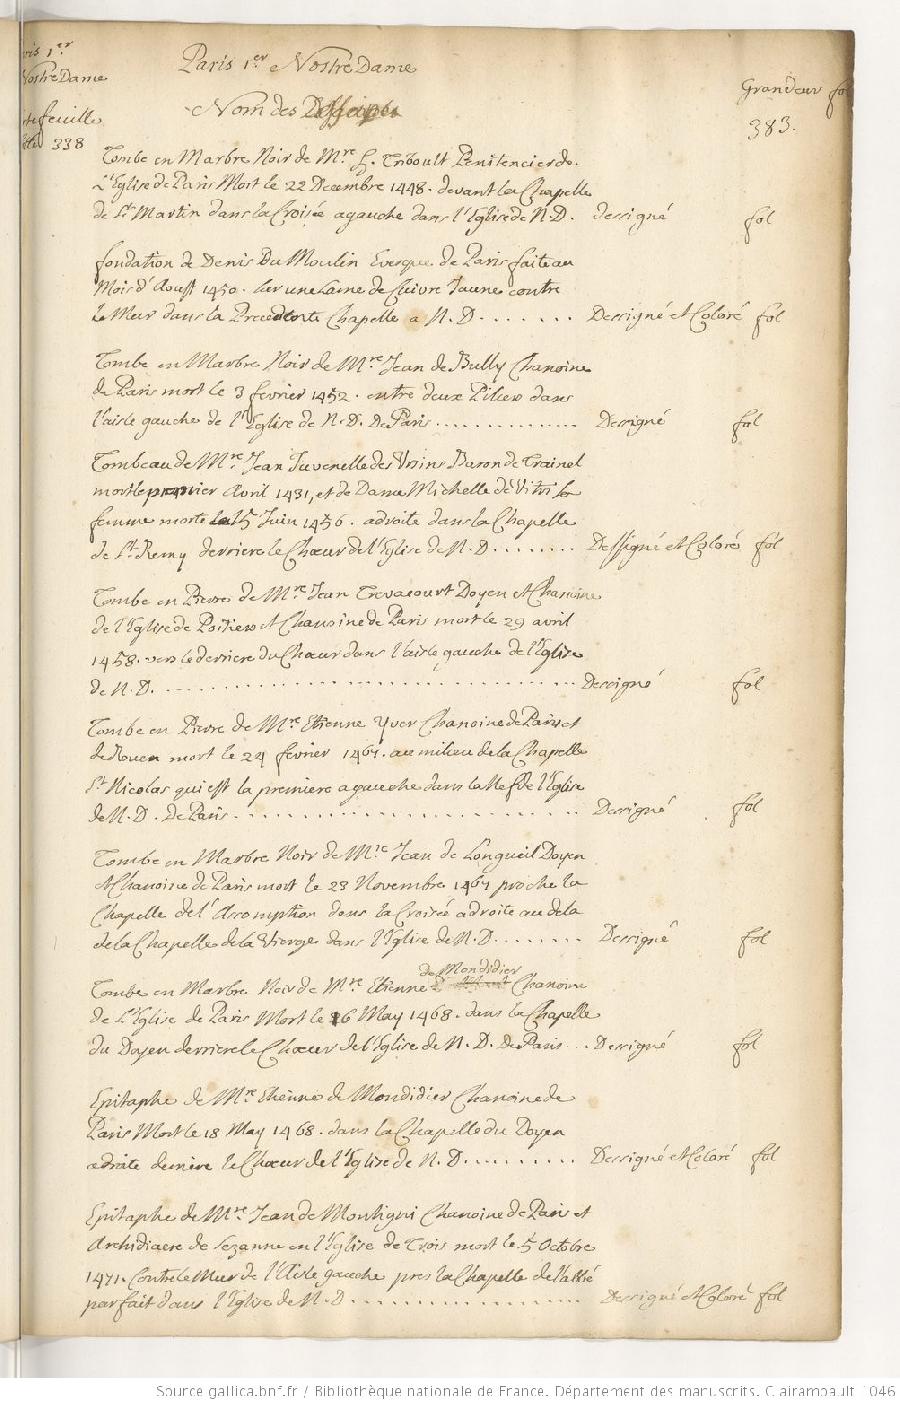 ris 1.er
Nostre Dame
tefeuille
338
Paris 1.er Nostre Dame
Nom des
Grandeur fol
383.
Tombe en Marbre Noir de Mre J. Triboult Penitencier de
L'Eglise de Paris Mort le 22 Decembre 1448. devant la Chapelle
de St Martin dans la Croisée a gauche dans l'Eglise de N. D. dessigné fol
fondation de Denis Du Moulin Evesque de Paris faite au
Mois d'Aoust 1450. sur une Lame de Cuivre Jaune contre
le Mur dans la Precedente Chapelle a N. D. ....... Dessigné et Coloré fol
Tombe en Marbre Noir de Mre Jean de Bully Chanoine
de Paris mort le 3 fevrier 1452. entre deux Piliers dans
l'aisle gauche de l'Eglise de N. D. De Paris .............. Dessigné fol
Tombeau de Mre Jean Juvenelle des Ursins Baron de Trainel
mort le premier Avril 1431, et de Dame Michelle de Vitri sa
femme morte le 15 Juin 1456. a droite dans la Chapelle
de St Remy derriere le Chœur de l'Eglise de N. D. ........ Dessigné et Coloré fol
Tombe en Pierre de Mre Jean Trevacourt Doyen et Chanoine
de l'Eglise de Poitiers et Chanoine de Paris mort le 29 avril
1458. vers le derriere du Chœur dans l'aisle gauche de l'Eglise
de N. D. .............................. Dessigné fol
Tombe en Pierre de Mre Etienne Yver Chanoine de Paris et
de Rouen mort le 24 fevrier 1467. au milieu de la Chapelle
St Nicolas qui est la premiere a gauche dans la Nef de l'Eglise
de N. D. De Paris ........................ Dessigné fol
Tombe en Marbre Noir de Mre Jean de Longueil Doyen
et Chanoine de Paris mort le 23 Novembre 1461 proche la
Chapelle de l'Assomption dans la Croisée a droite au dela
de la Chapelle de la Vierge dans l'Eglise de N. D. ........ Dessigné fol
de Mondidier
Tombe en Marbre Noir de Mre Etienne Chanoine
de L'Eglise de Paris Mort le 16 May 1468. dans la Chapelle
du Doyen derriere le Chœur de l'Eglise de N. D. De Paris .. Dessigné fol
Epitaphe de Mre Etienne de Mondidier Chanoine de
Paris Mort le 18 May 1468. dans la Chapelle du Doyen
a droite derriere le Chœur de l'Eglise de N. D. .......... Dessigné et Coloré fol
Epitaphe de Mre Jean de Montigni Chanoine de Paris et
Archidiacre de Sezanne en l'Eglise de Trois mort le 5 Octobre
1471. Contre le Mur de l'Aisle gauche pres la Chapelle de l'abbé
parfait dans l'Eglise de N. D. ..................... Dessigné et Coloré fol
Source gallica.bnf.fr / Bibliothèque nationale de France. Département des manuscrits. Clairambault 1046